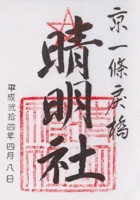 京一條戻橋
晴明社
平成弐拾四年四月八日